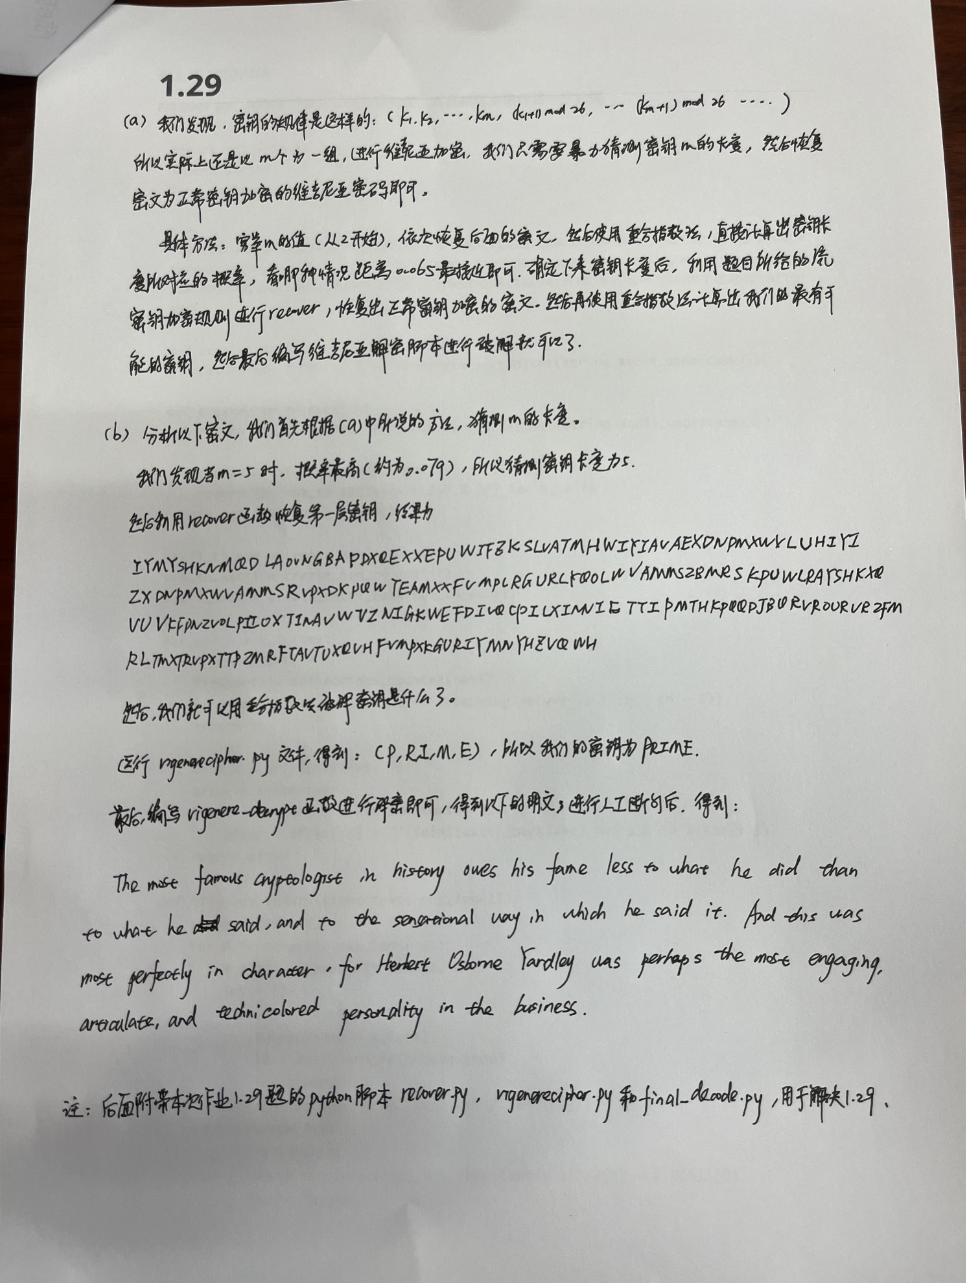 1.29
(a) 我们发现，密钥的规律是这样的：(k1, k2, ..., km, (k1+1) mod 26, ... (km+1) mod 26 ....)
所以实际上还是以m个为一组，进行维吉尼亚加密，我们只需要暴力猜测密钥m的长度，然后恢复
密文为正常密钥加密的维吉尼亚密码即可。
具体方法：穷举m的值(从2开始)，依次恢复后面的密文，然后使用重合指数法，直接计算出密钥长
度所对应的概率，看哪种情况距离0.065最接近即可。确定下来密钥长度后，利用题目所给的流
密钥加密规则进行recover，恢复出正常密钥加密的密文。然后再使用重合指数法计算出我们的最有可
能的密钥，然后最后编写维吉尼亚解密脚本进行破解就可以了.
(b) 分析以下密文，我们首先根据(a)中所说的方法，猜测m的长度。
我们发现当m=5时，概率最高(约为0.079)，所以猜测密钥长度为5.
然后利用recover函数恢复第一层密钥，结果为
IYMYSHKNMQD LAOVNGBAPDXQEXXEPUWITFZKSLVATMHWIYIYIAVAEXDNPMXWVLUHIYI
ZXDNPMXWVAMMSRVPXDKPQWTEAMXXFVMPLRGURLYQOLWVAMMSZBMRSKPUWLRAYSHKXQ
VUVKFPNZVOLPILOXTINAVWVZNIGKWEFDIVQCPILXINNIETTIPMTHKPQQDJBURVROURVRZFM
RLTMXTRVPXTTPZMRFTAVTUXQVHFVMPXKGURIYMNYHZVQWH
然后，我们就可以用重合指数法破译密钥是什么了。
运行 vigenerecipher.py 文件，得到：(P,R,I,M,E)，所以我们的密钥为PRIME.
最后，编写 vigenere_decrypt 函数进行解密即可，得到以下的明文；进行人工断句后，得到：
The most famous cryptologist in history owes his fame less to what he did than
to what he said, and to the sensational way in which he said it. And this was
most perfectly in character, for Herbert Osborne Yardley was perhaps the most engaging,
articulate, and technicolored personality in the business.
注：后面附带本次作业1.29题的python脚本 recover.py，vigenerecipher.py 和final_decode.py，用于解决1.29.